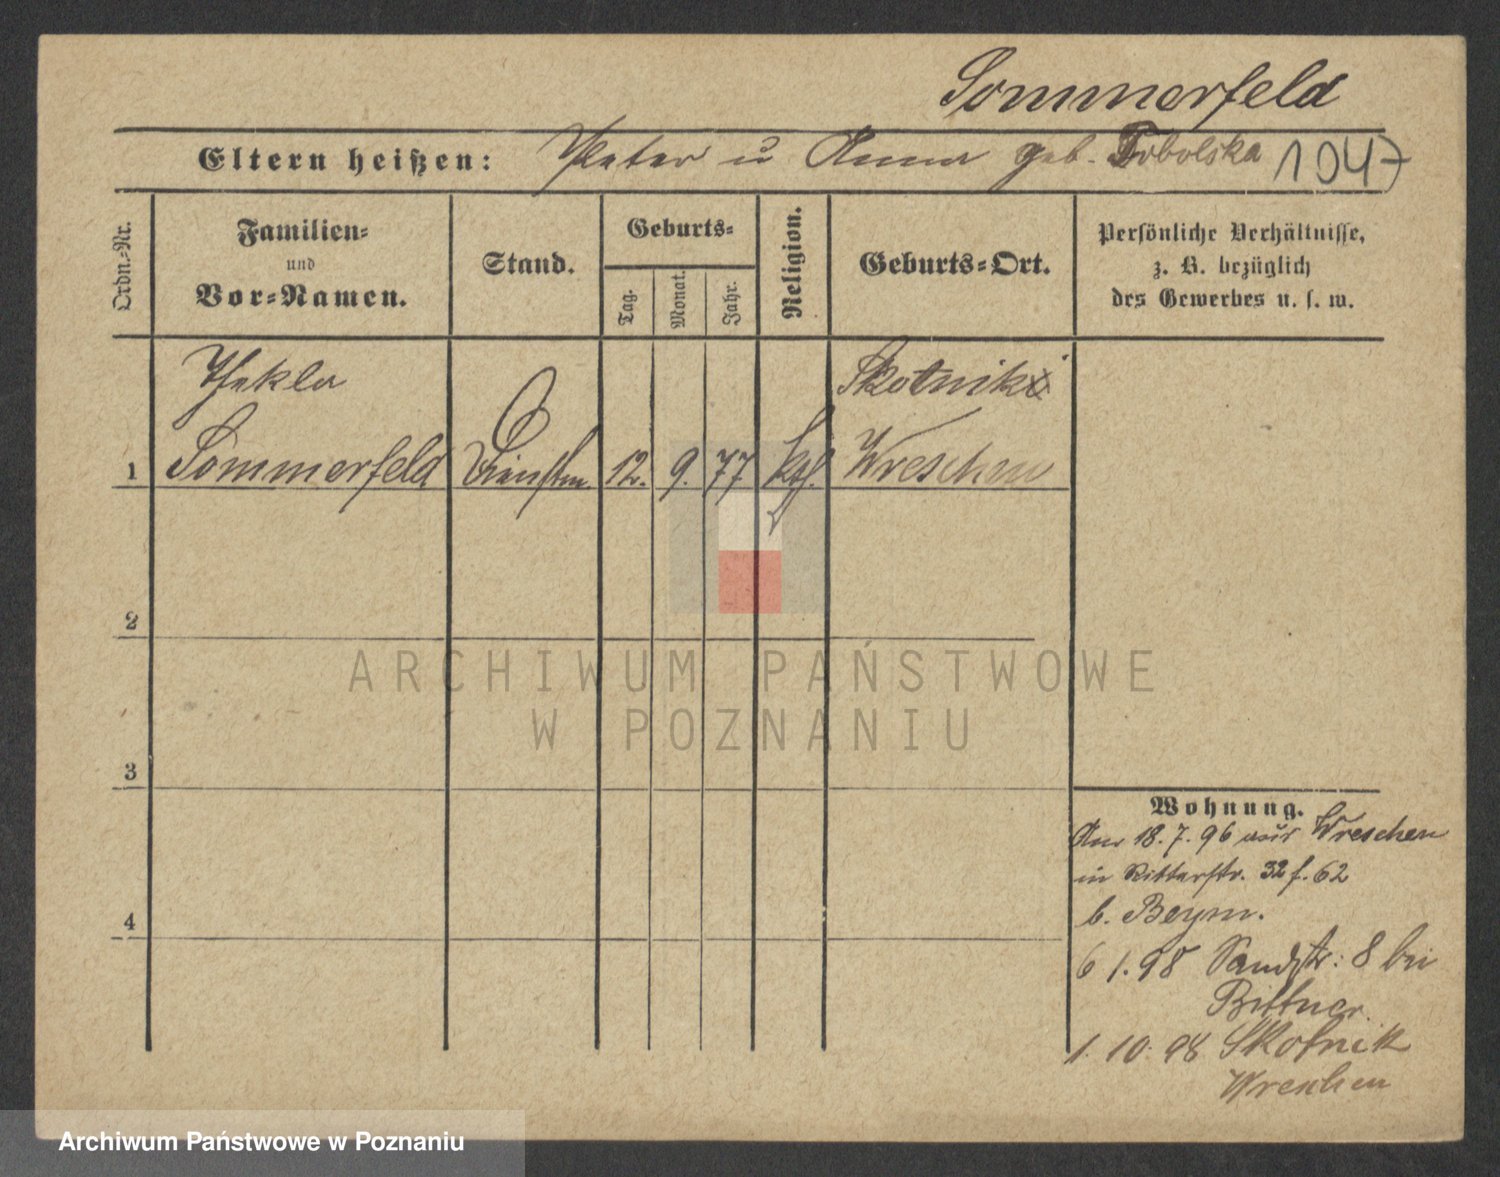 Sommerfeld
Eltern heißen: Peter u Anna geb. Tobolska 1047
Ordn.-Nr.
Familien-
und
Vor-Namen.
Stand.
Geburts-
Tag.
Monat.
Jahr.
Religion.
Geburts-Ort.
Persönliche Verhältnisse,
z. B. bezüglich
des Gewerbes u. s. w.
Thekla
Skotniki
1 Sommerfeld Dienstm. 12. 9. 77 kth. Wreschen
2
3
4
Wohnung.
Am 18.7.96 aus Wreschen
in Ritterstr. 32 f. 62
b. Beym.
6 1.98 Sandstr: 8 bei
Bittner.
1. 10. 98 Skotnik
Wreschen
ARCHIWUM PAŃSTWOWE
W POZNANIU
Archiwum Państwowe w Poznaniu